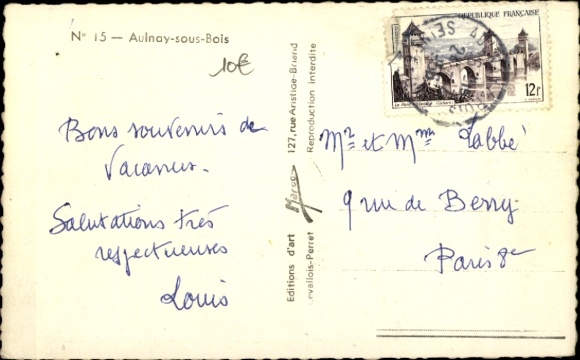 N° 15 — Aulnay-sous-Bois
10€
Bons souvenirs de
Vacances.
Salutations très
respectueuses
Louis
Editions d'art Marco
127, rue Aristide-Briand
evallois-Perret
Reproduction interdite
RÉPUBLIQUE FRANÇAISE
12f
Mr et Mme Labbé
9 rue de Berry
Paris 8e